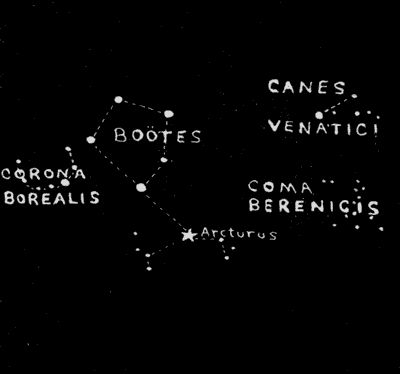 CANES
VENATICI
BOÖTES
CORONA
BOREALIS
COMA
BERENICIS
Arcturus